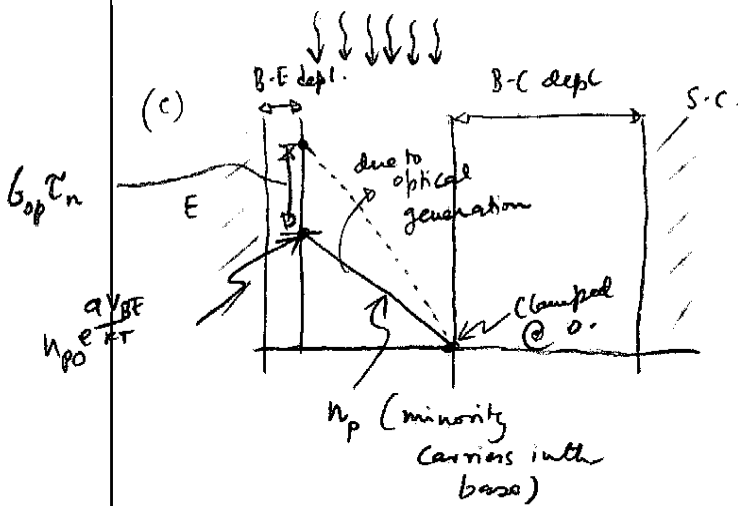 B-E depl.
B-C depl
S.C.
(c)
due to
optical
generation
G_op τ_n
E
n_p0 e^{qV_BE/KT}
Clamped
@ 0.
n_p (minority
carriers in the
base)